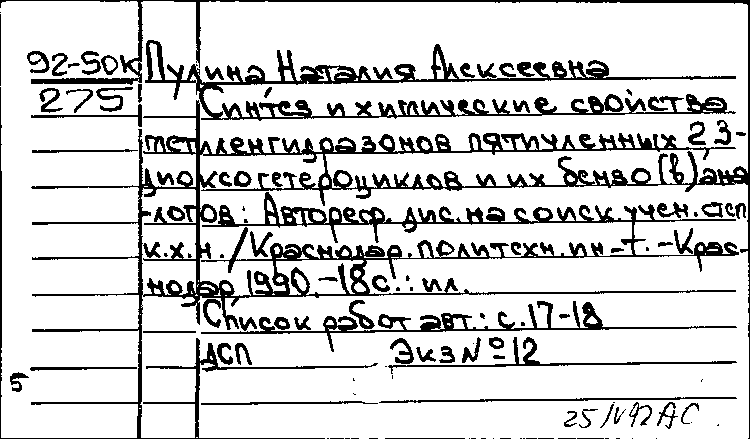 92-50к Пулина Наталия Алексеевна
275 Синтез и химические свойства
метиленгидразонов пятичленных 2,3-
диоксогетероциклов и их бензо(в)ана
-логов: Автореф. дис. на соиск. учен. степ
к.х.н. / Краснодар. политехн. ин-т. - Крас-
нодар 1990. - 18с.: ил.
Список работ авт.: с. 17-18
ДСП Экз № 12
5
25/IV 92 АС